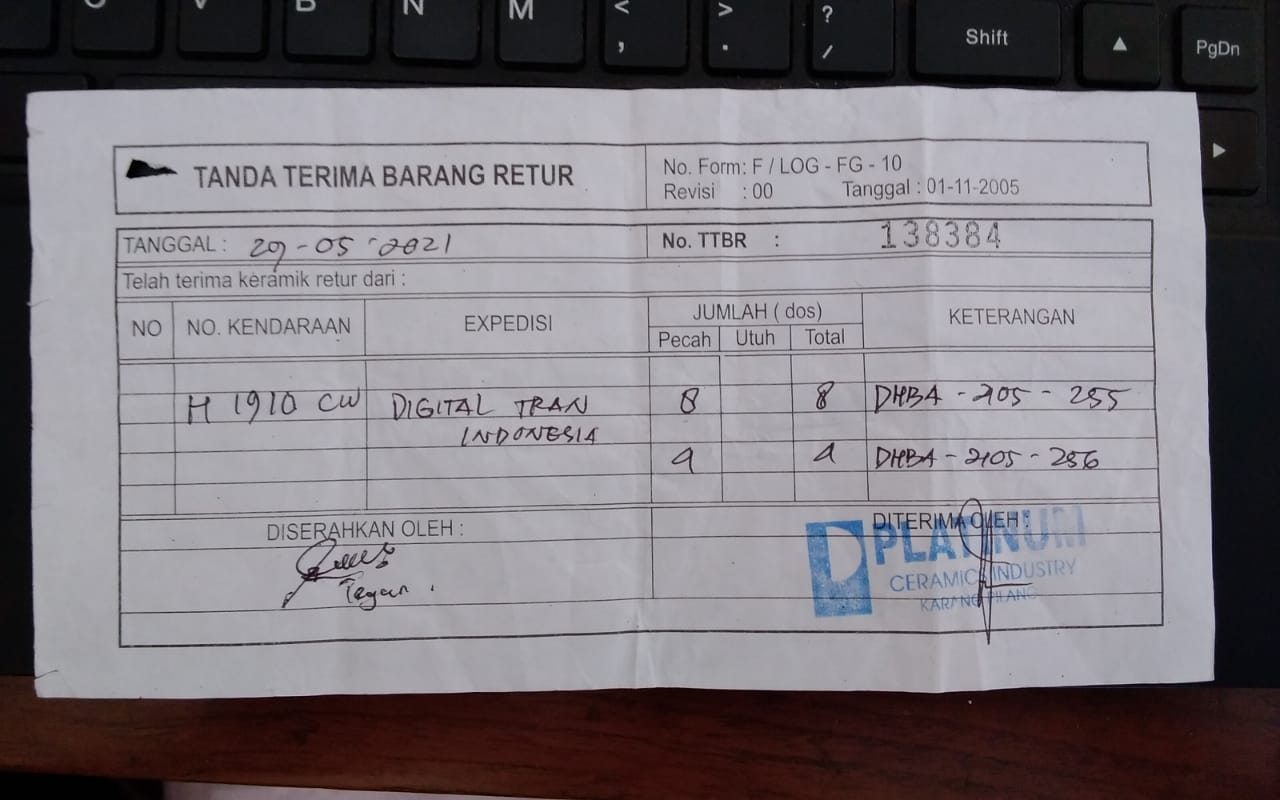 C V B N M < , > . ? / Shift ▲ PgDn
►
TANDA TERIMA BARANG RETUR
No. Form: F / LOG - FG - 10
Revisi : 00 Tanggal : 01-11-2005
TANGGAL : 29-05-2021 No. TTBR : 138384
Telah terima keramik retur dari :
NO NO. KENDARAAN EXPEDISI JUMLAH ( dos) KETERANGAN
Pecah Utuh Total
H 1910 CW DIGITAL TRAN 8 8 DHBA - 2105 - 255
INDONESIA
9 9 DHBA - 2105 - 256
DISERAHKAN OLEH : DITERIMA OLEH :
PLATINUM
CERAMICS INDUSTRY
KARANG PILANG